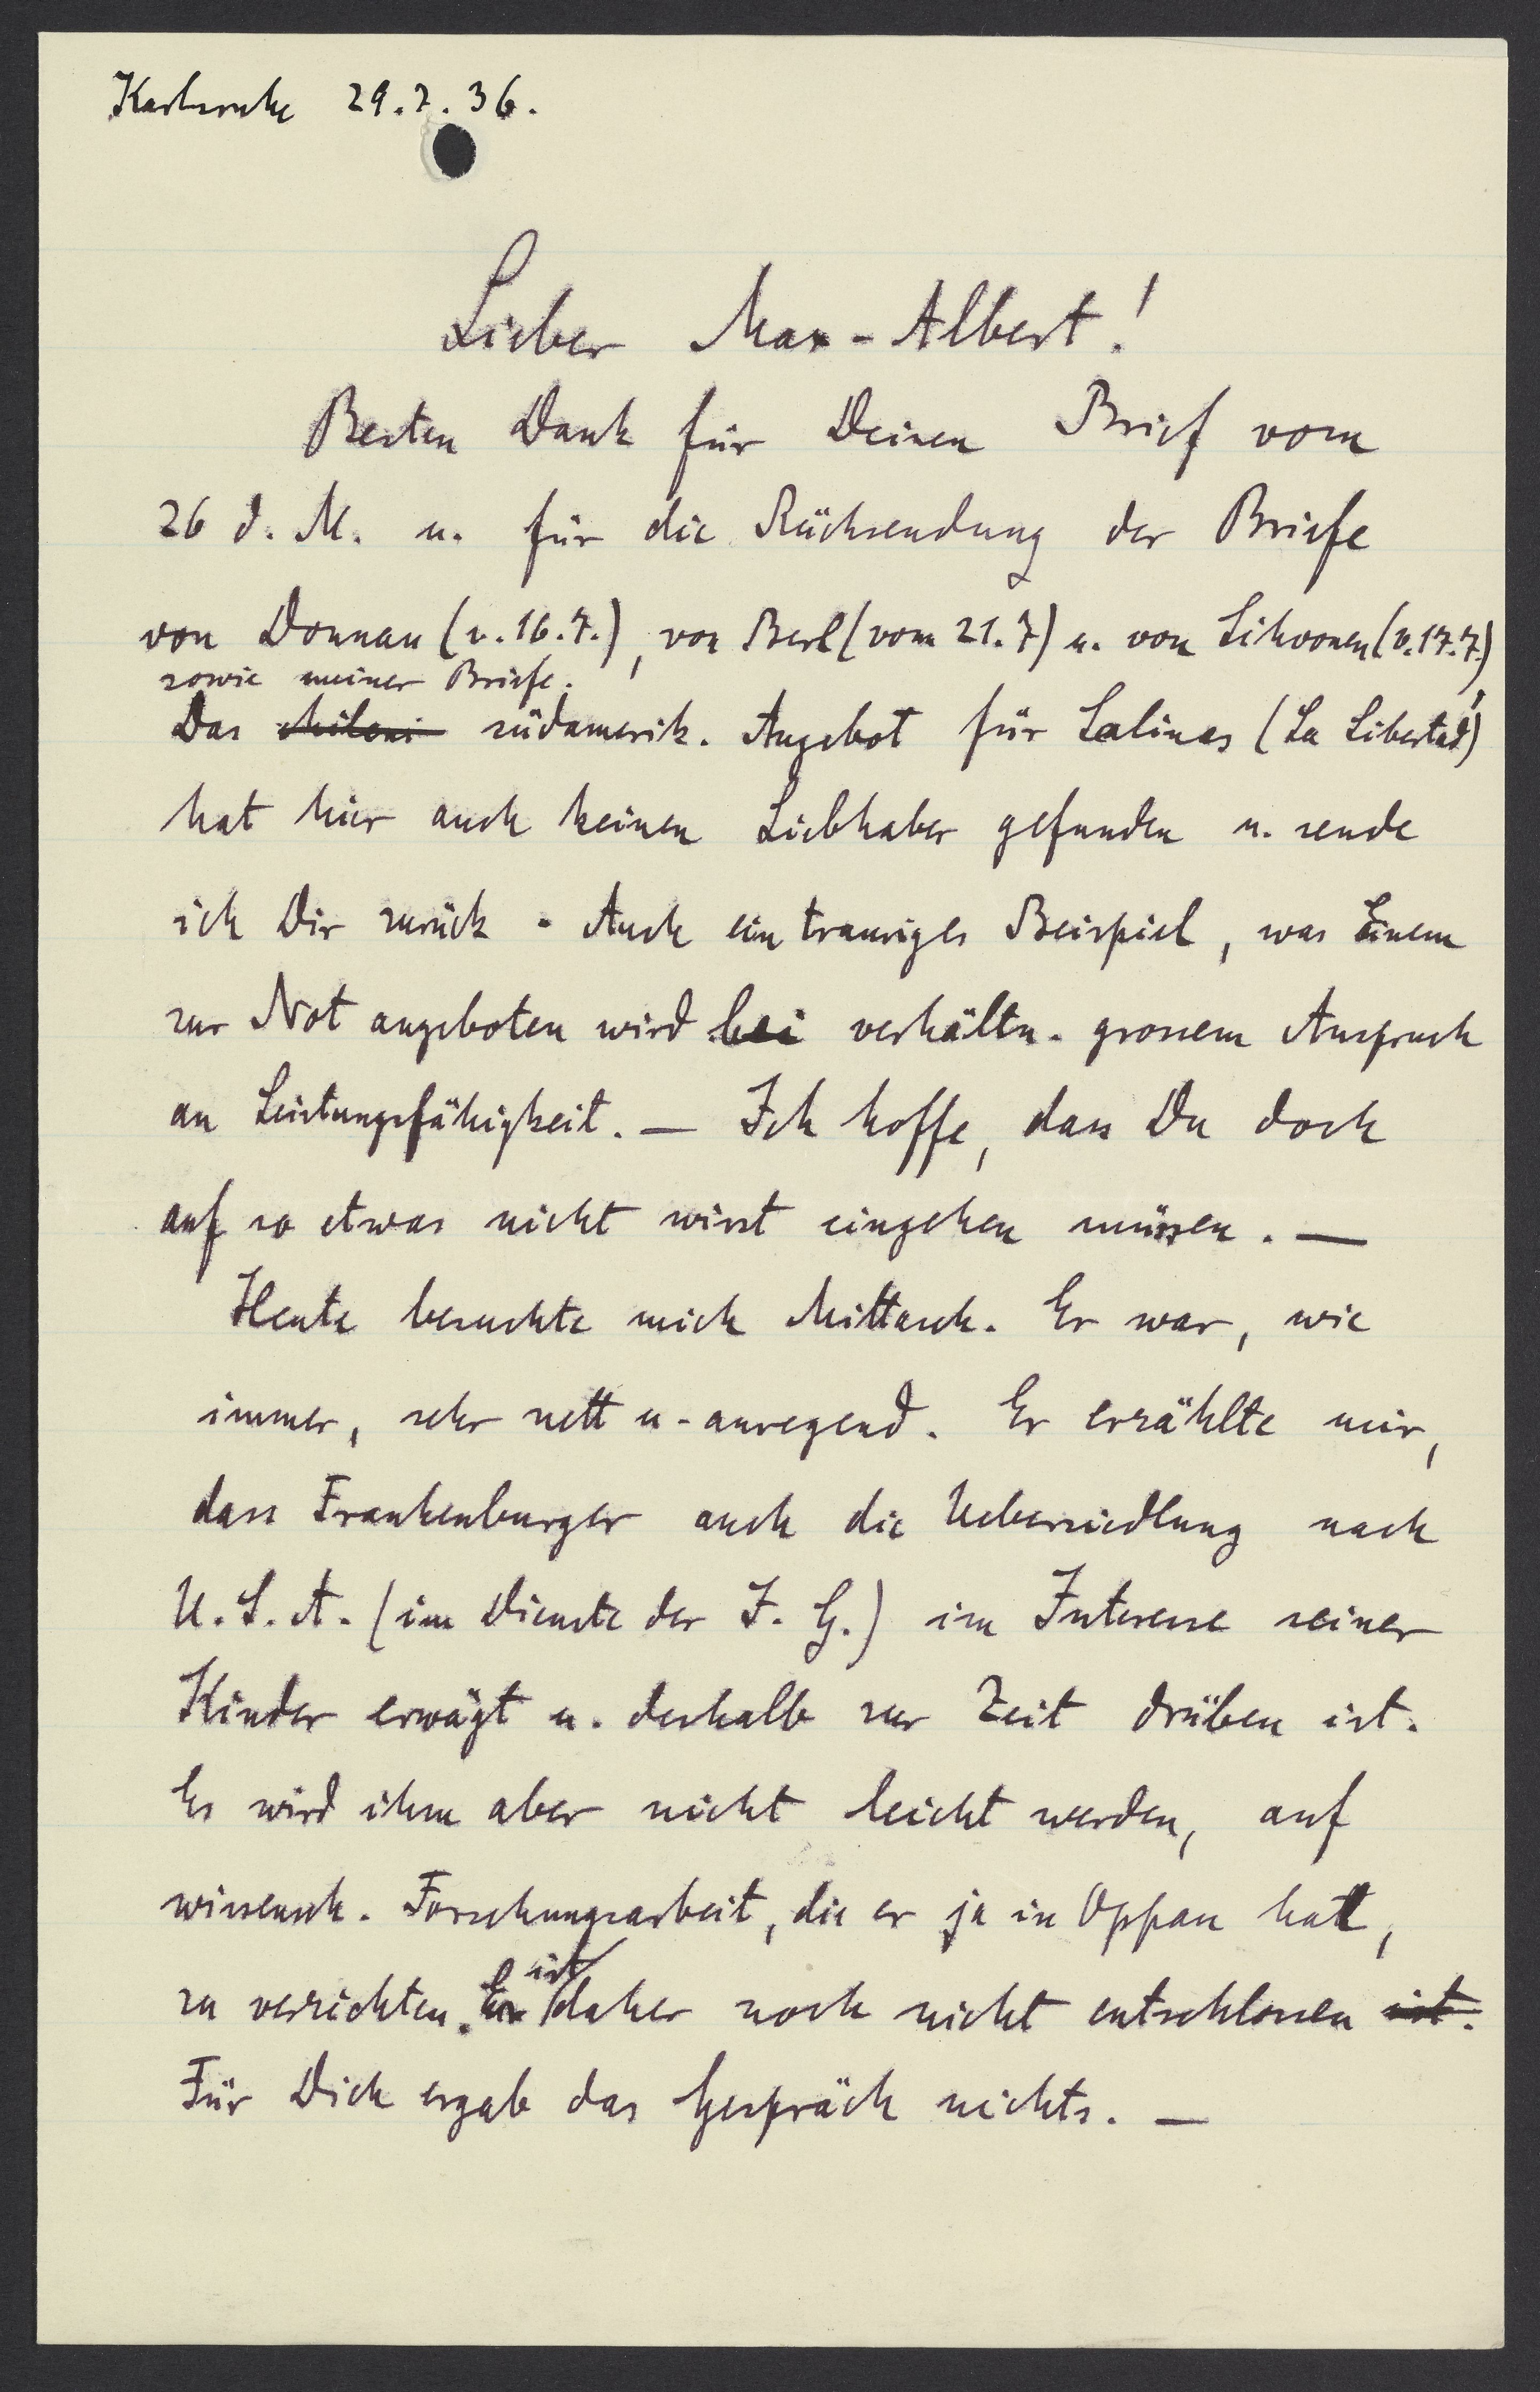 Karlsruhe 29.7.36.
Lieber Max-Albert!
Besten Dank für Deinen Brief vom
26 d. M. u. für die Rücksendung der Briefe
von Donnan (v. 16.7.), von Berl (vom 21.7) u. von Sihvonen (v. 17.7.)
sowie meiner Briefe.
Das chileni südamerik. Angebot für Salinas (La Libertad)
hat hier auch keinen Liebhaber gefunden u. sende
ich Dir zurück. Auch ein trauriges Beispiel, was Einem
zur Not angeboten wird bei verhältn. grossem Anspruch
an Leistungsfähigkeit. — Ich hoffe, dass Du doch
auf so etwas nicht wirst eingehen müssen. —
Heute besuchte mich Mittasch. Er war, wie
immer, sehr nett u. anregend. Er erzählte mir,
dass Frankenburger auch die Uebersiedlung nach
U.S.A. (im Dienste der I. G.) im Interesse seiner
Kinder erwägt u. deshalb zur Zeit drüben ist.
Es wird ihm aber nicht leicht werden, auf
wissensch. Forschungsarbeit, die er ja in Oppau hat,
zu verzichten. Er ist daher noch nicht entschlossen ist.
Für Dich ergab das Gespräch nichts. —